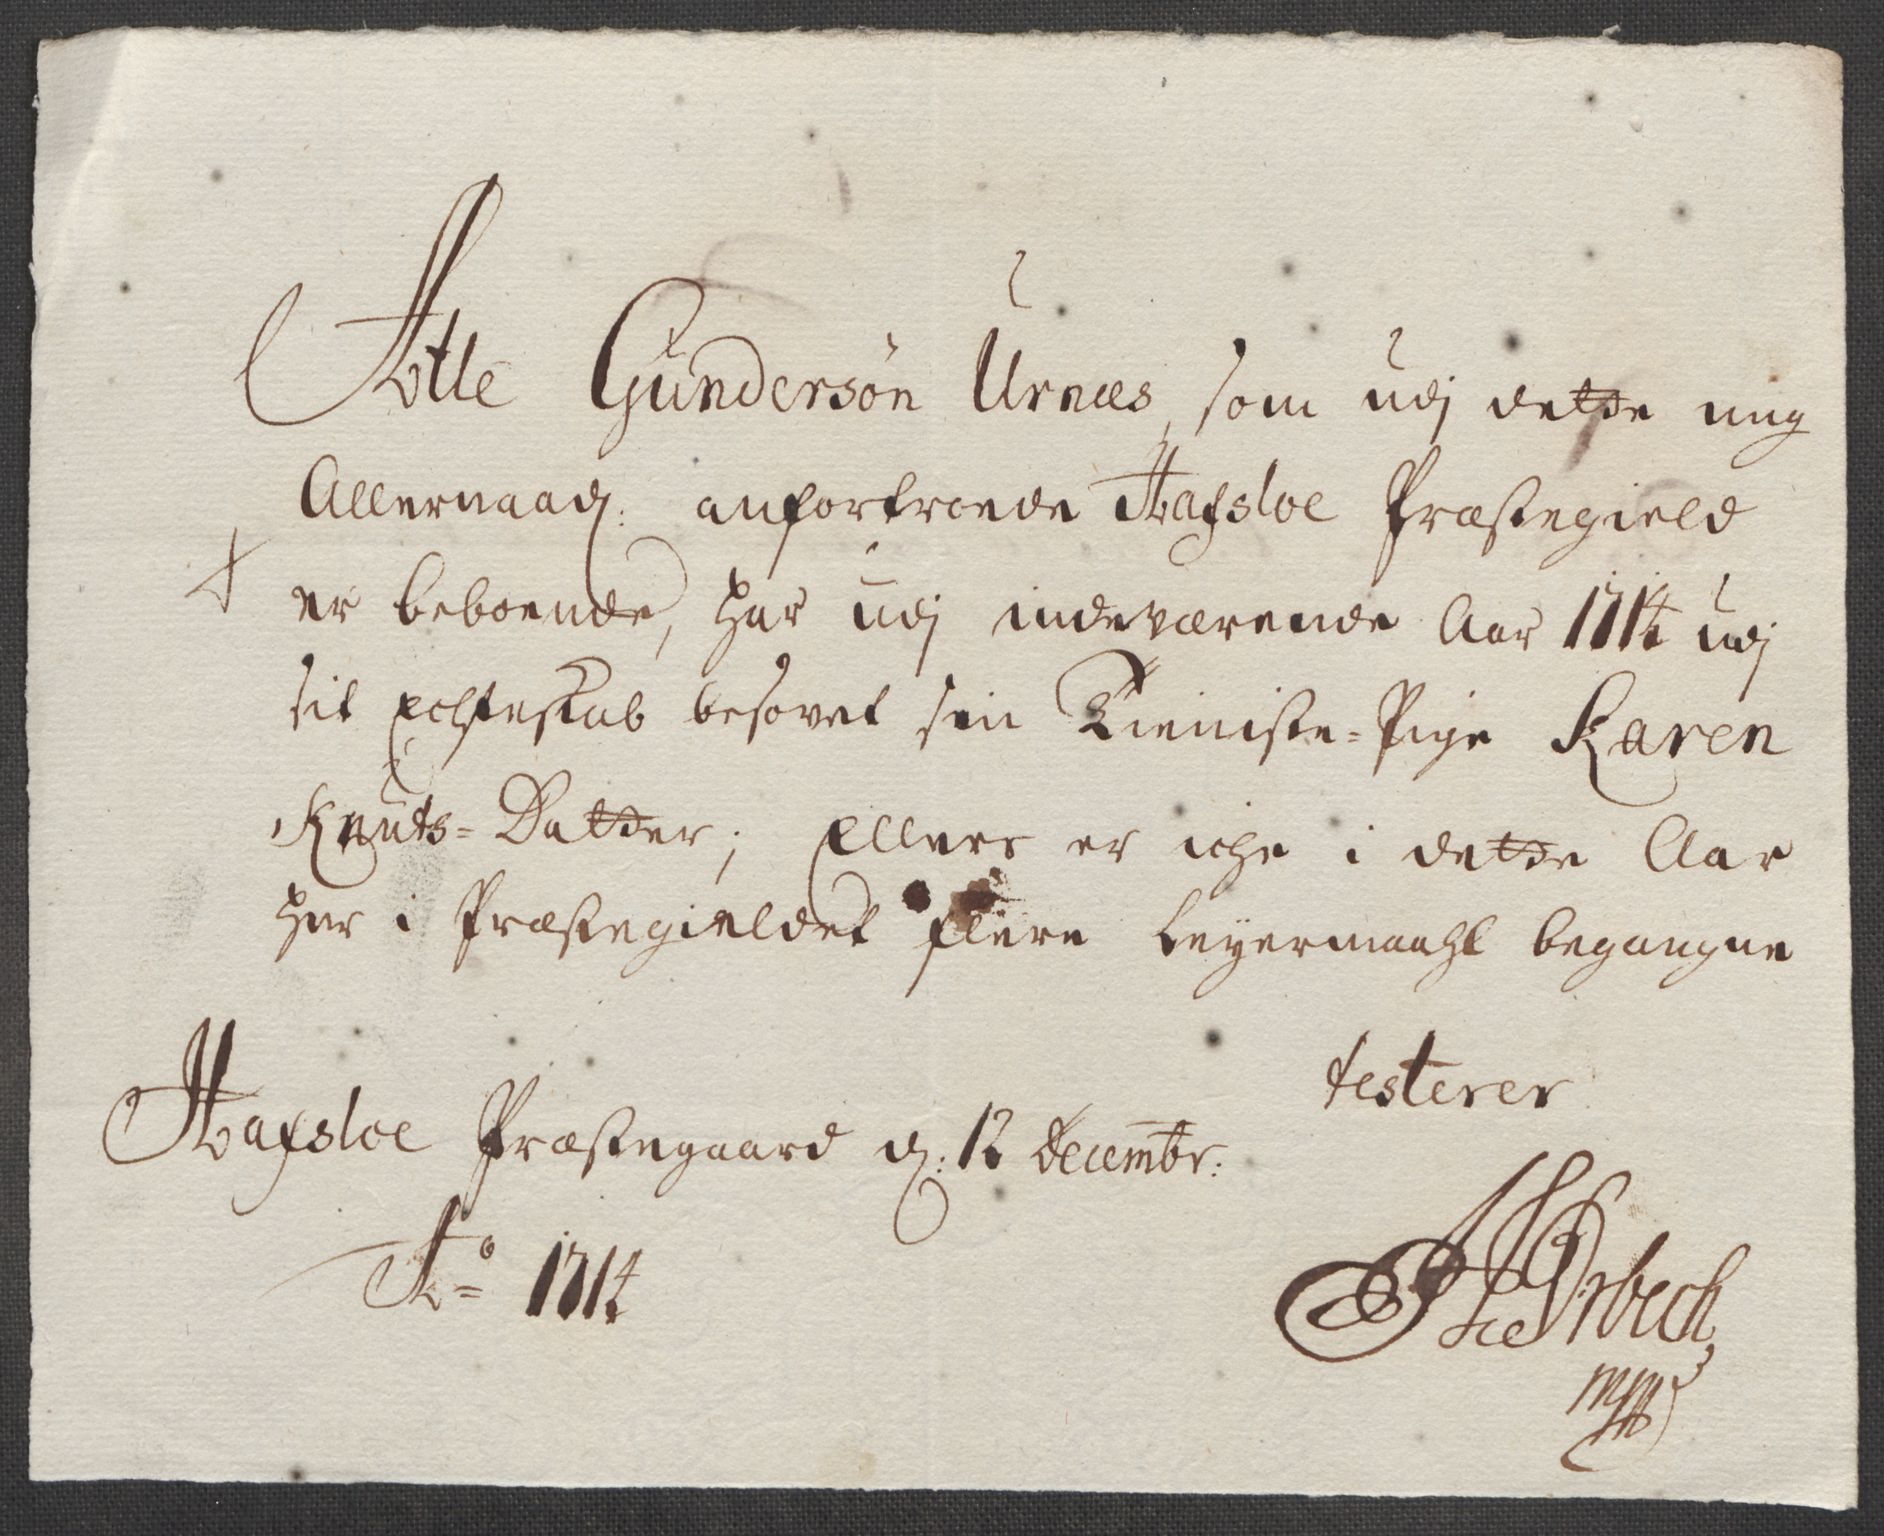 Atle Gundersøn Urnæs, som udj dette mig
Allernaad: anfortroede Hafsloe Præstegield
er beboende, har udj indeværende Aar 1714 udj
sit Echteskab besovet sin Tieniste-Pige Karen
Knuts-Datter; Ellers er iche i dette Aar
her i Præstegieldet flere Leyermaahl begangne
testerer
Hafsloe Præstegaard d: 12 Decembr:
Ao 1714
Orbech
mpp